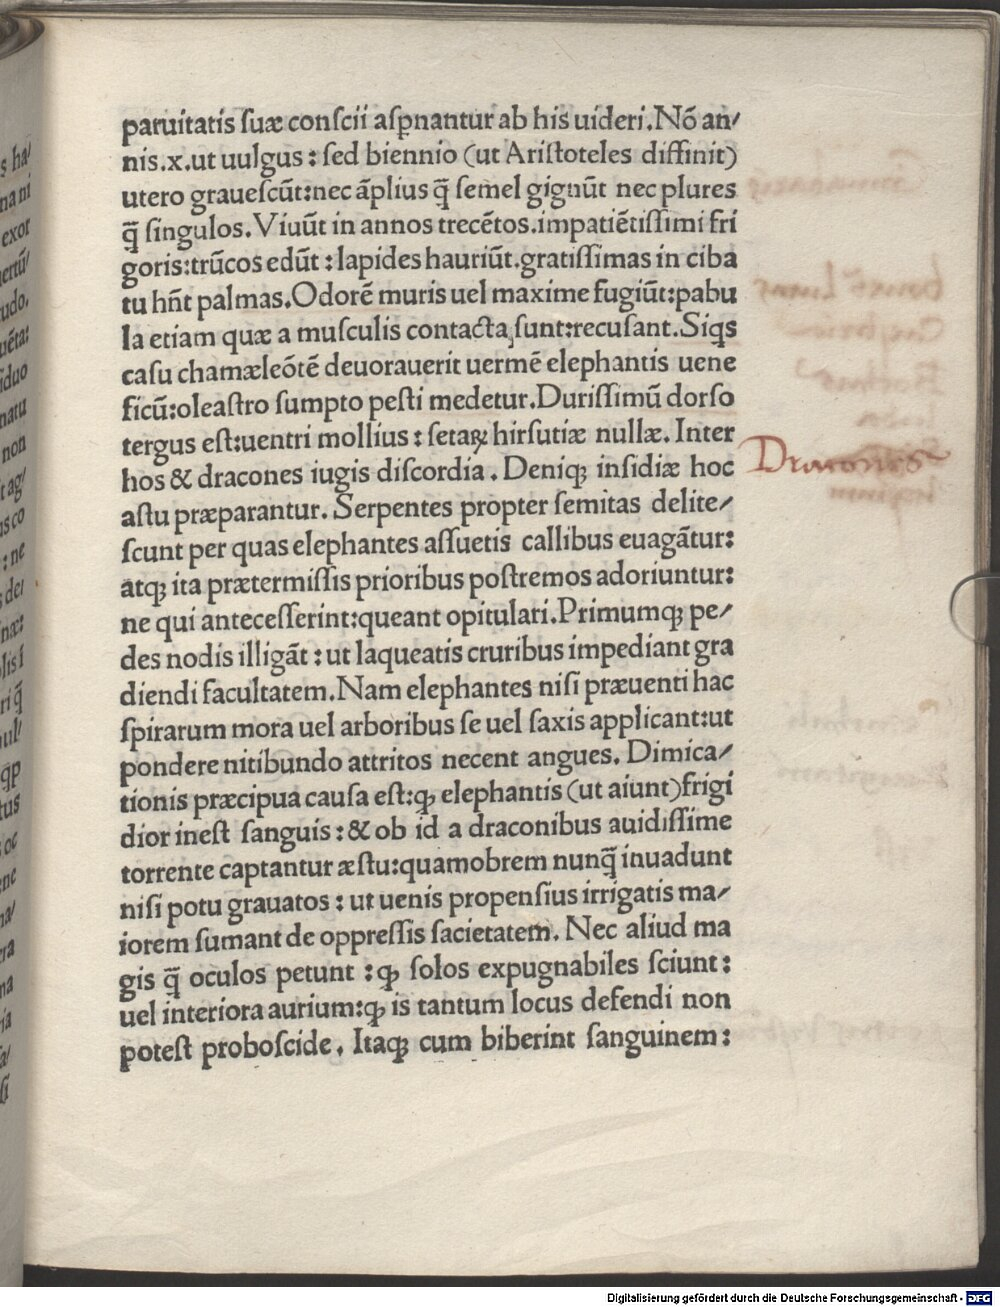 paruitatis ſuæ conſcii aſpnantur ab his uideri.Nõ an/
nis.x.ut uulgus : ſed biennio (ut Ariſtoteles diffinit)
utero graueſcũt:nec ãplius q̃ ſemel gignũt nec plures
q̃ ſingulos.Viuũt in annos trecẽtos.impatiẽtiſſimi fri
goris:trũcos edũt : lapides hauriũt.gratiſſimas in ciba
tu hñt palmas.Odorẽ muris uel maxime fugiũt:pabu
la etiam quæ a muſculis contacta ſunt:recuſant.Siqs
caſu chamæleõtẽ deuorauerit uermẽ elephantis uene
ficũ:oleaſtro ſumpto peſti medetur.Duriſſimũ dorſo
tergus eſt:uentri mollius : ſetaꝝ hirſutiæ nullæ. Inter
hos & dracones iugis diſcordia. Deniqꝫ inſidiæ hoc
aſtu præparantur. Serpentes propter ſemitas delite/
ſcunt per quas elephantes aſſuetis callibus euagãtur:
atqꝫ ita prætermiſſis prioribus poſtremos adoriuntur:
ne qui anteceſſerint:queant opitulari.Primumqꝫ pe/
des nodis illigãt : ut laqueatis cruribus impediant gra
diendi facultatem.Nam elephantes niſi præuenti hac
ſpirarum mora uel arboribus ſe uel ſaxis applicant:ut
pondere nitibundo attritos necent angues. Dimica/
tionis præcipua cauſa eſt:ꝙ elephantis (ut aiunt)frigi
dior ineſt ſanguis : & ob id a draconibus auidiſſime
torrente captantur æſtu:quamobrem nunq̃ inuadunt
niſi potu grauatos : ut uenis propenſius irrigatis ma/
iorem ſumant de oppreſſis ſacietatem. Nec aliud ma
gis q̃ oculos petunt : ꝙ ſolos expugnabiles ſciunt:
uel interiora aurium:ꝙ is tantum locus defendi non
poteſt proboſcide. Itaqꝫ cum biberint ſanguinem:
Dracones
Digitalisierung gefördert durch die Deutsche Forschungsgemeinschaft - DFG